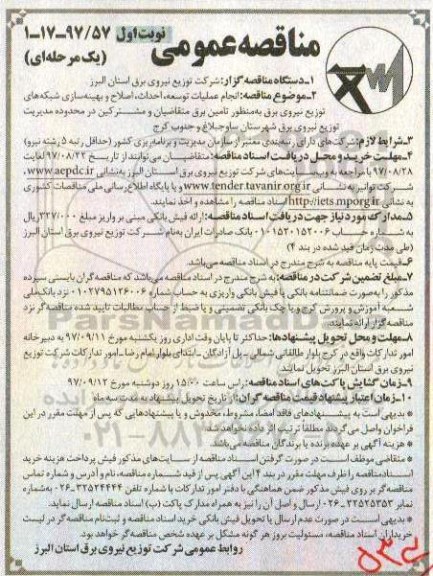 مناقصه عمومی
نوبت اول ۹۷/۵۷-۱۷-۱
(یک مرحله ای)
۱-دستگاه مناقصه گزار: شرکت توزیع نیروی برق استان البرز
۲-موضوع مناقصه: انجام عملیات توسعه، احداث، اصلاح و بهینه‌سازی شبکه‌های
توزیع نیروی برق به‌منظور تامین برق متقاضیان و مشترکین در محدوده مدیریت
توزیع نیروی برق شهرستان ساوجبلاغ و جنوب کرج
۳-شرایط لازم: شرکت‌های دارای رتبه‌بندی معتبر از سازمان مدیریت و برنامه‌ریزی کشور (حداقل رتبه ۵ رشته نیرو)
۴-مهلت خرید و محل دریافت اسناد مناقصه: متقاضیان می‌توانند از تاریخ ۹۷/۰۸/۲۲ لغایت
۹۷/۰۸/۲۸ با مراجعه به وب‌سایت‌های شرکت توزیع نیروی برق استان البرز به‌نشانی www.aepdc.ir،
شرکت توانیر به‌نشانی www.tender.tavanir.org.ir و یا پایگاه اطلاع رسانی ملی مناقصات کشوری
به نشانی http://iets.mporg.ir اسناد مناقصه را مشاهده و اخذ نمایند.
۵-مدارک مورد نیاز جهت دریافت اسناد مناقصه: ارائه فیش بانکی مبنی بر واریز مبلغ ۳۲۷/۰۰۰ ریال
به شماره حساب ۰۱۰۱۵۲۰۱۵۲۰۰۶ بانک صادرات ایران به‌نام شرکت توزیع نیروی برق استان البرز
(طی مدت زمان قید شده در بند ۴)
۶-قیمت پایه مناقصه به شرح مندرج در اسناد مناقصه می‌باشد.
۷-مبلغ تضمین شرکت در مناقصه: به شرح مندرج در اسناد مناقصه می‌باشد که مناقصه گران بایستی سپرده
مذکور را به‌صورت ضمانتنامه بانکی یا فیش بانکی واریزی به حساب شماره ۰۱۰۲۷۹۵۱۲۶۰۰۶ نزد بانک ملی
شعبه آموزش و پرورش کرج و یا چک بانکی تضمینی و یا ضبط از حساب مطالبات تایید شده مناقصه‌گر نزد
مناقصه گزار ارائه نمایند.
۸-مهلت و محل تحویل پیشنهادها: حداکثر تا پایان وقت اداری روز یکشنبه مورخ ۹۷/۰۹/۱۱ به دبیرخانه
امور تدارکات واقع در کرج بلوار طالقانی شمالی - پل آزادگان - ابتدای بلوار امام رضا - امور تدارکات شرکت توزیع
نیروی برق استان البرز تحویل نمایند.
۹-زمان گشایش پاکت‌های اسناد مناقصه: راس ساعت ۱۵/۰۰ روز دوشنبه مورخ ۹۷/۰۹/۱۲
۱۰-زمان اعتبار پیشنهاد قیمت مناقصه گران: از تاریخ تحویل پیشنهاد به مدت سه ماه
* بدیهی است به پیشنهادهای فاقد امضا، مشروط، مخدوش و یا پیشنهادهایی که پس از مهلت مقرر در این
فراخوان واصل می‌گردد مطلقا ترتیب اثر داده نخواهد شد.
* هزینه آگهی بر عهده برنده یا برندگان مناقصه می‌باشد.
* متقاضی موظف است در صورت گرفتن اسناد مناقصه از سایت‌های مذکور فیش پرداخت هزینه خرید
اسناد مناقصه را ظرف مهلت مقرر در بند ۴ این آگهی پس از قید شماره مناقصه، نام و آدرس و شماره تماس
مناقصه گر بر روی فیش مذکور ضمن هماهنگی با دفتر امور تدارکات با شماره تلفن ۳۲۵۲۴۴۴۴-۰۲۶ به‌شماره
نمابر ۳۲۵۲۵۳۵۲-۰۲۶ ارسال و اصل آن را نیز به همراه مدارک پاکت (ب) اسناد مناقصه ارسال نماید.
* بدیهی است در صورت عدم ارسال یا تحویل فیش بانکی خرید اسناد مناقصه و ثبت‌نام مناقصه گر در لیست
خریداران اسناد مناقصه، مسئولیت بروز هر گونه مشکل بر عهده شخص مناقصه گر خواهد بود.
روابط عمومی شرکت توزیع نیروی برق استان البرز